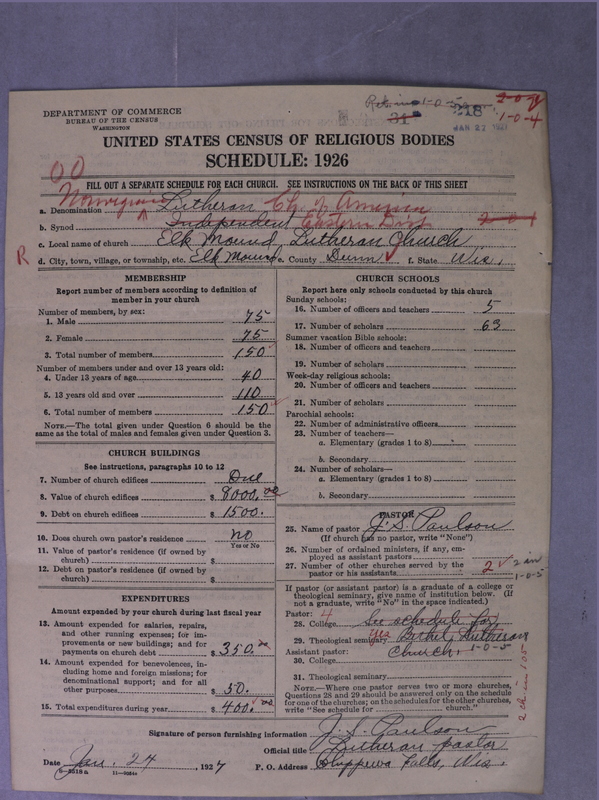 DEPARTMENT OF COMMERCE
BUREAU OF THE CENSUS
WASHINGTON
1-0-5
2-0-4
1-0-4
31
218
JAN 27 1927
UNITED STATES CENSUS OF RELIGIOUS BODIES
SCHEDULE: 1926
00
FILL OUT A SEPARATE SCHEDULE FOR EACH CHURCH. SEE INSTRUCTIONS ON THE BACK OF THIS SHEET
Norwegian
a. Denomination Lutheran Ch. of America
b. Synod Independent Eastern Dist.
c. Local name of church Elk Mound Lutheran Church
R
d. City, town, village, or township, etc. Elk Mound e. County Dunn f. State Wis.
MEMBERSHIP
Report number of members according to definition of
member in your church
Number of members, by sex:
1. Male 75
2. Female 75
3. Total number of members 150
Number of members under and over 13 years old:
4. Under 13 years of age 40
5. 13 years old and over 110
6. Total number of members 150
NOTE.—The total given under Question 6 should be
same as the total of males and females given under Question 3.
CHURCH BUILDINGS
See instructions, paragraphs 10 to 12
7. Number of church edifices One
8. Value of church edifices $ 8000.00
9. Debt on church edifices $ 1500.
10. Does church own pastor's residence no
Yes or No
11. Value of pastor's residence (if owned by
church) $
12. Debt on pastor's residence (if owned by
church) $
EXPENDITURES
Amount expended by your church during last fiscal year
13. Amount expended for salaries, repairs,
and other running expenses; for im-
provements or new buildings; and for
payments on church debt $ 350.
14. Amount expended for benevolences, in-
cluding home and foreign missions; for
denominational support; and for all
other purposes $ 50.
15. Total expenditures during year $ 400.00
CHURCH SCHOOLS
Report here only schools conducted by this church
Sunday schools:
16. Number of officers and teachers 5
17. Number of scholars 63
Summer vacation Bible schools:
18. Number of officers and teachers
19. Number of scholars
Week-day religious schools:
20. Number of officers and teachers
21. Number of scholars
Parochial schools:
22. Number of administrative officers
23. Number of teachers—
a. Elementary (grades 1 to 8)
b. Secondary
24. Number of scholars—
a. Elementary (grades 1 to 8)
b. Secondary
PASTOR
25. Name of pastor J. S. Paulson
(If church has no pastor, write "None")
26. Number of ordained ministers, if any, em-
ployed as assistant pastors
27. Number of other churches served by the
pastor or his assistants 2 2 in
1-0-5
If pastor (or assistant pastor) is a graduate of a college or
theological seminary, give name of institution below. (If
not a graduate, write "No" in the space indicated.)
Pastor: 4
28. College See schedule for
29. Theological seminary Bethel Lutheran
Assistant pastor: Church. 1-0-5
30. College
31. Theological seminary
NOTE.—Where one pastor serves two or more churches,
Questions 28 and 29 should be answered only on the schedule
for one of the churches; on the schedules for the other churches,
write "See schedule for church."
2 ch in 105
Signature of person furnishing information J. S. Paulson
Official title Lutheran pastor
Date Jan. 24, 1927 P. O. Address Chippewa Falls, Wis.